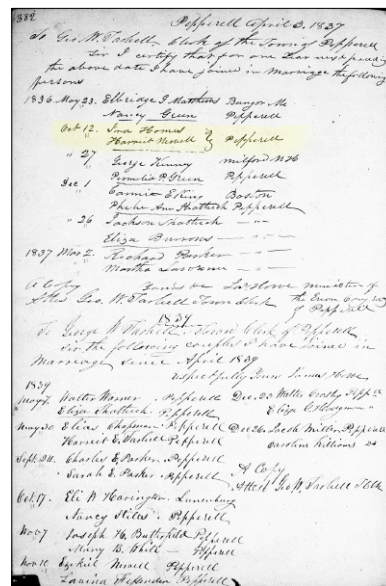 382
Pepperell April 3, 1837
To Geo. W. Tarbell, Clerk of the Town of Pepperell
Sir I certify that for one Year next preceding
the above date I have joined in Marriage the following
persons
1836 May 23. Elbridge Matthews Bangor Me
Nancy Green Pepperell
Oct 12. Homes
Harriet Newell Pepperell
" 27 George Kinny Milford N H
Permelia P. Green Pepperell
Dec 1 King Boston
Phebe Ann Shattuck Pepperell
" 26 Jackson Shattuck
Eliza Burrows
1837 Mar 2. Richard Parker
Martha
A Copy minister of
Attest Geo. W. Tarbell Town Clerk of Pepperell
1839
To George W. Tarbell, Town Clerk of Pepperell
Sir the following couples I have joined in
Marriage since April 1839
respectfully Yours
1839
May 7. Walter Warner, Pepperell
Eliza Shattuck, Pepperell
May 30 Elias Chapman, Pepperell
Harriet E. Tarbell Pepperell
Sept. 24. Charles E. Parker, Pepperell
Sarah E. Parker, Pepperell
Oct. 17. Eli W Harington, Lunenburg
Nancy Stiles, Pepperell
Nov 7 Joseph H. Butterfield Pepperell
Mary B. Pepperell
Nov 10 Ezekiel Newell Pepperell
Lavina Pepperell
Dec. 23. Walter Crosby
Eliza
Dec 26. Jacob Miller Pepperell
Caroline Williams do
A Copy
Attest Geo. W. Tarbell